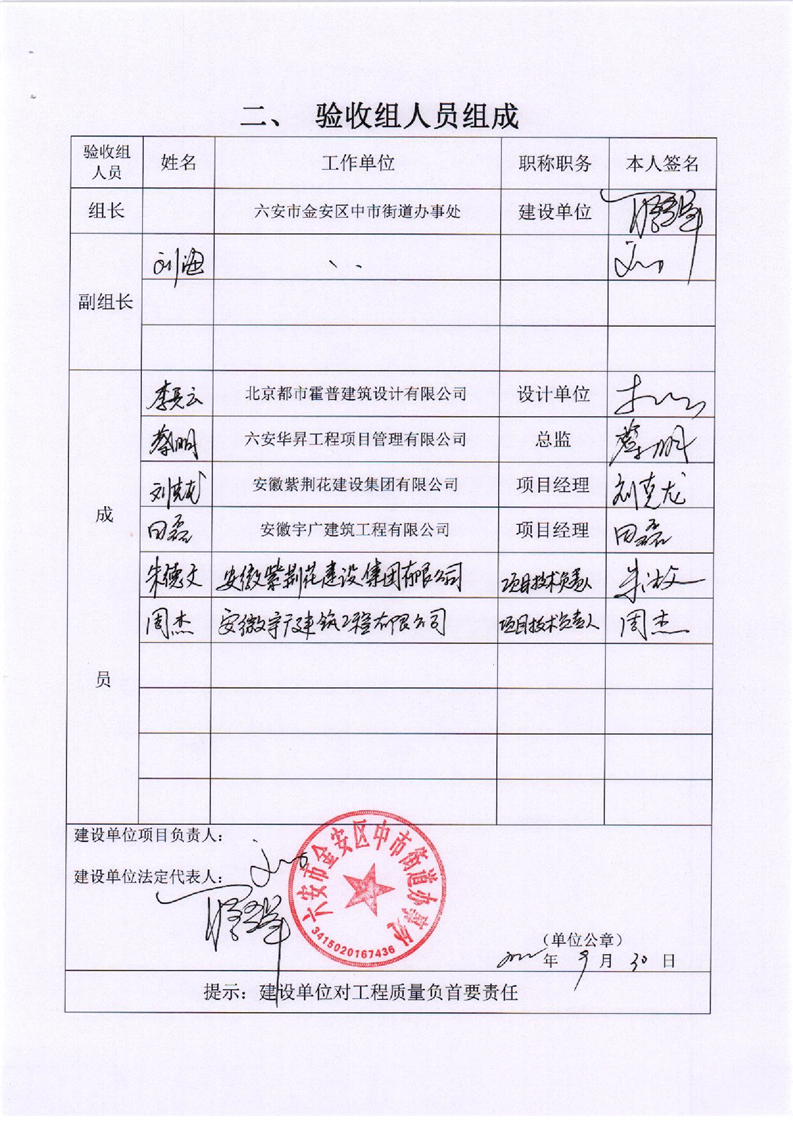 二、 验收组人员组成
验收组人员 姓名 工作单位 职称职务 本人签名
组长 六安市金安区中市街道办事处 建设单位
副组长 刘海 、、
成员
李亮云 北京都市霍普建筑设计有限公司 设计单位
蔡明 六安华昇工程项目管理有限公司 总监 蔡明
刘克龙 安徽紫荆花建设集团有限公司 项目经理 刘克龙
田磊 安徽宇广建筑工程有限公司 项目经理 田磊
朱德文 安徽紫荆花建设集团有限公司 项目技术负责人
周杰 安徽宇广建筑工程有限公司 项目技术负责人 周杰
建设单位项目负责人：
建设单位法定代表人：
六安市金安区中市街道办事处
3415020167436
（单位公章）
年 9 月 30 日
提示：建设单位对工程质量负首要责任